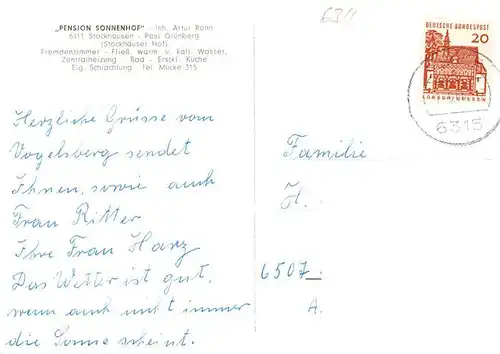 „PENSION SONNENHOF" - Inh. Artur Rahn
6311 Stockhausen - Post Grünberg
(Stockhäuser Hof)
Fremdenzimmer - Fließ. warm. u. kalt. Wasser,
Zentralheizung Bad - Erstkl. Küche
Eig. Schlachtung Tel. Mücke 315
6311
DEUTSCHE BUNDESPOST
20
LORSCH/HESSEN
6315
Herzliche Grüsse vom
Vogelsberg sendet
Ihnen, sowie auch
Frau Ritter
Ihre Frau Harz
Das Wetter ist gut,
wenn auch nicht immer
die Sonne scheint.
Familie
H.
6507
A.